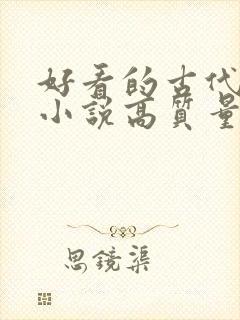 好看的古代
小説高質量
思鏡渠